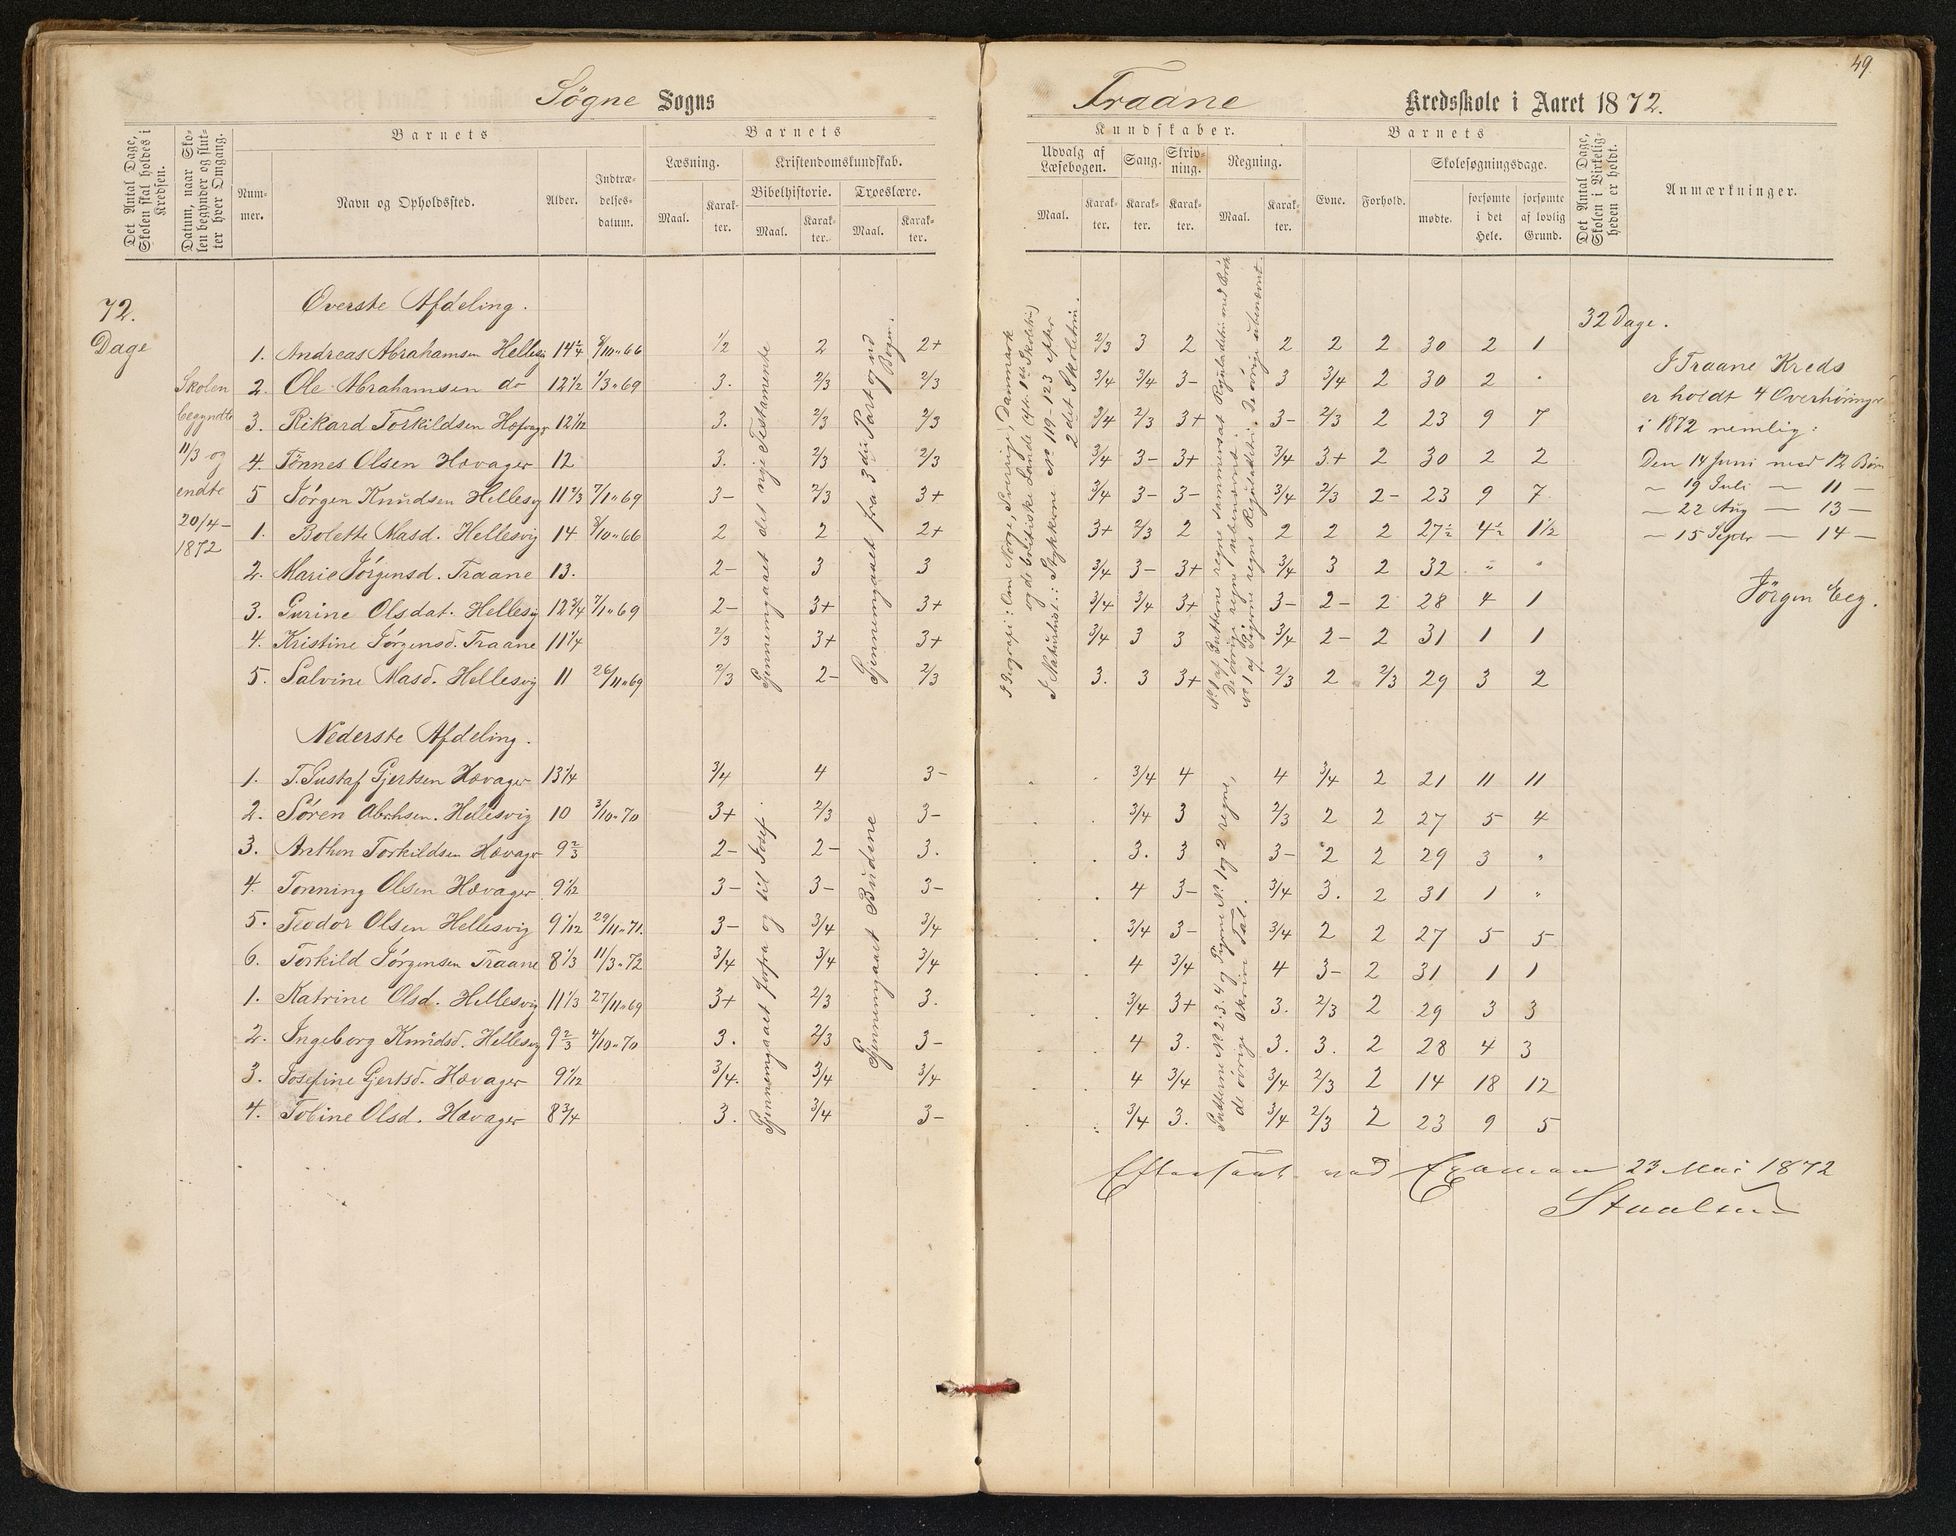 49
Søgne Sogns
Traane Kredsskole i Aaret 1872.
Det Antal Dage, Skolen skal holdes i Kredsen.
Datum, naar Skolen begynder og slutter hver Omgang.
Barnets
Nummer.
Navn og Opholdssted.
Alder.
Indtrædelsesdatum.
Barnets
Læsning.
Maal.
Karakter.
Kristendomskundskab.
Bibelhistorie.
Maal.
Karakter.
Troeslære.
Maal.
Karakter.
Kundskaber.
Udvalg af Læsebogen.
Maal.
Karakter.
Sang.
Karakter.
Skrivning.
Karakter.
Regning.
Maal.
Karakter.
Barnets
Evne.
Forhold.
Skolesøgningsdage.
mødte.
forsømte i det Hele.
forsømte af lovlig Grund.
Det Antal Dage, Skolen i Virkeligheden er holdt.
Anmærkninger.
72.
Dage
Skolen
begyndte
11/3 og
endte
20/4 -
1872
Øverste Afdeling.
1. Andreas Abrahamsen Hellesvig 14 1/4 8/10 " 66 1/2 2 2+ 2/3 3 2 2 2 2 30 2 1
2. Ole Abrahamsen do 12 1/2 1/3 " 69 3. 2/3 2/3 3/4 3/4 3- 3 3/4 2 30 2 "
3. Rikard Torkildsen 12 1/12 3. 2/3 2/3 3/4 2/3 3+ 3- 2/3 2 23 9 7
4. Tønnes Olsen Hævager 12 3. 2/3 2/3 3/4 3- 3+ 3/4 3+ 2 30 2 2
5 Jørgen Knudsen Hellesvg 11 2/3 7/1 " 69 3- 2/3 3+ 3/4 3- 3- 3/4 2/3 2- 23 9 7
1. Bolette Masd. Hellesvig 14 8/10 " 66 2 2 2+ 3+ 2/3 2 2 2 2 27 1/2 4 1/2 1 1/2
2. Marie Jørgensd. Traane 13. 2- 3 3 3/4 3- 3+ 3/4 3 2 32 " "
3. Gurine Olsdat. Hellesvg 12 3/4 7/1 " 69 2- 3+ 3+ 3/4 3/4 3+ 3- 2- 2 28 4 1
4. Kristine Jørgensd. Traane 11 1/4 2/3 3+ 3+ 3/4 3 3 3/4 2- 2 31 1 1
5. Salvine Masd. Hellesvig 11 26/11 " 69 2/3 2- 2/3 3. 3 3+ 2/3 2 2/3 29 3 2
Gjennemgaaet det nye Testamente
Gjennemgaaet fra 3die Part og ud Bogen.
I Geografi: Om Norge, Sverige, Danmark
og de brittiske Lande eft. 1ste Skoletrin
I Naturhist.: Stykkerne N. 119-123 efter
2det Skoletrin.
N. 1 af Gutterne regne sammensat Reguladetri med Brøk
De øvrige regne ubenævnt.
N. 1 af Pigerne regne Reguladetri. De øvrige ubenævnt.
32 Dage.
I Traane Kreds
er holdt 4 Overhøringer
i 1872 nemlig:
Den 14 Juni med 12 Børn
— 19 Juli — 11 —
— 22 Aug — 13 —
— 15 Septr — 14 —
Jørgen Eeg.
Nederste Afdeling.
1. T. Gustaf Gjertsen Hævager 13 1/4 3/4 4 3- 3/4 4 4 3/4 2 21 11 11
2. Søren Abrhsen. Hellesvig 10 3/10 " 70 3+ 2/3 3- 3/4 3 2/3 2 2 27 5 4
3. Anthon Torkildsen Hævager 9 2/3 2- 2- 3. 3. 3 3- 2 2 29 3 "
4. Tønning Olsen Hævager 9 1/12 3- 3- 3- 4 3- 3/4 3. 2 31 1 "
5. Teodor Olsen Hellesvig 9 1/12 29/11 " 71. 3- 3/4 3/4 3/4 3- 3/4 2 2 27 5 5
6. Torkild Jørgensen Traane 8 1/3 11/3 " 72 3/4 3/4 3/4 4 3/4 4 3- 2 31 1 1
1. Katrine Olsd. Hellesvig 11 1/3 27/11 " 69 3+ 2/3 3. 3/4 3+ 3. 2/3 2 29 3 3
2. Ingeborg Knudsd. Hellesvig 9 2/3 4/10 " 70 3. 2/3 3- 4 3. 3. 3. 2 28 4 3
3. Josefine Gjertsd. Hævager 9 1/12 3/4. 3/4 3/4 4 3/4 3/4 2/3 2 14 18 12
4. Tobine Olsd. Hævager 8 3/4 3. 3/4 3- 3/4 3. 3/4 2/3 2 23 9 5
Gjennemgaaet forfra og til Josef.
Gjennemgaaet Budene
Gutterne N. 2. 3. 4 og Pigerne N. 1 og 2 regne,
de øvrige skrive Tal.
Efterseet ved Examen 23 Mai 1872